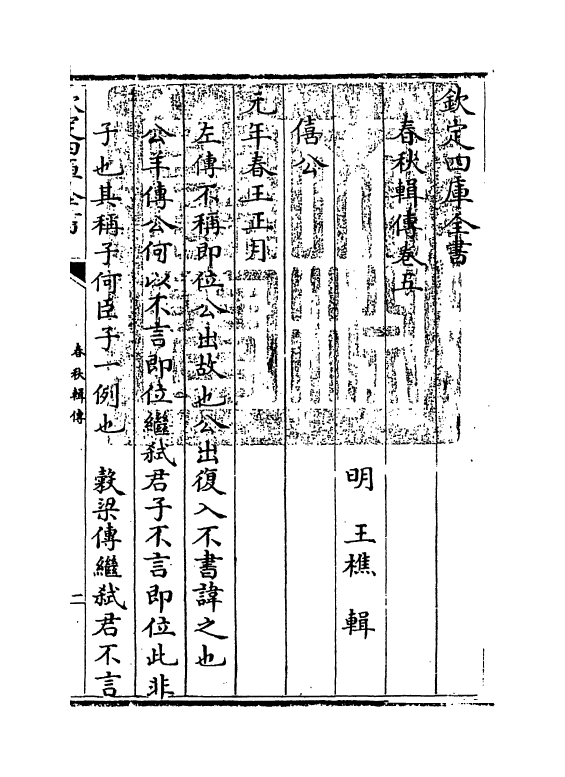 欽定四庫全書
春秋輯傳卷五
明 王樵 輯
僖公
元年春王正月
左傳不稱即位公出故也公出復入不書諱之也
公羊傳公何以不言即位繼弒君子不言即位此非
子也其稱子何臣子一例也 穀梁傳繼弒君不言
春秋輯傳